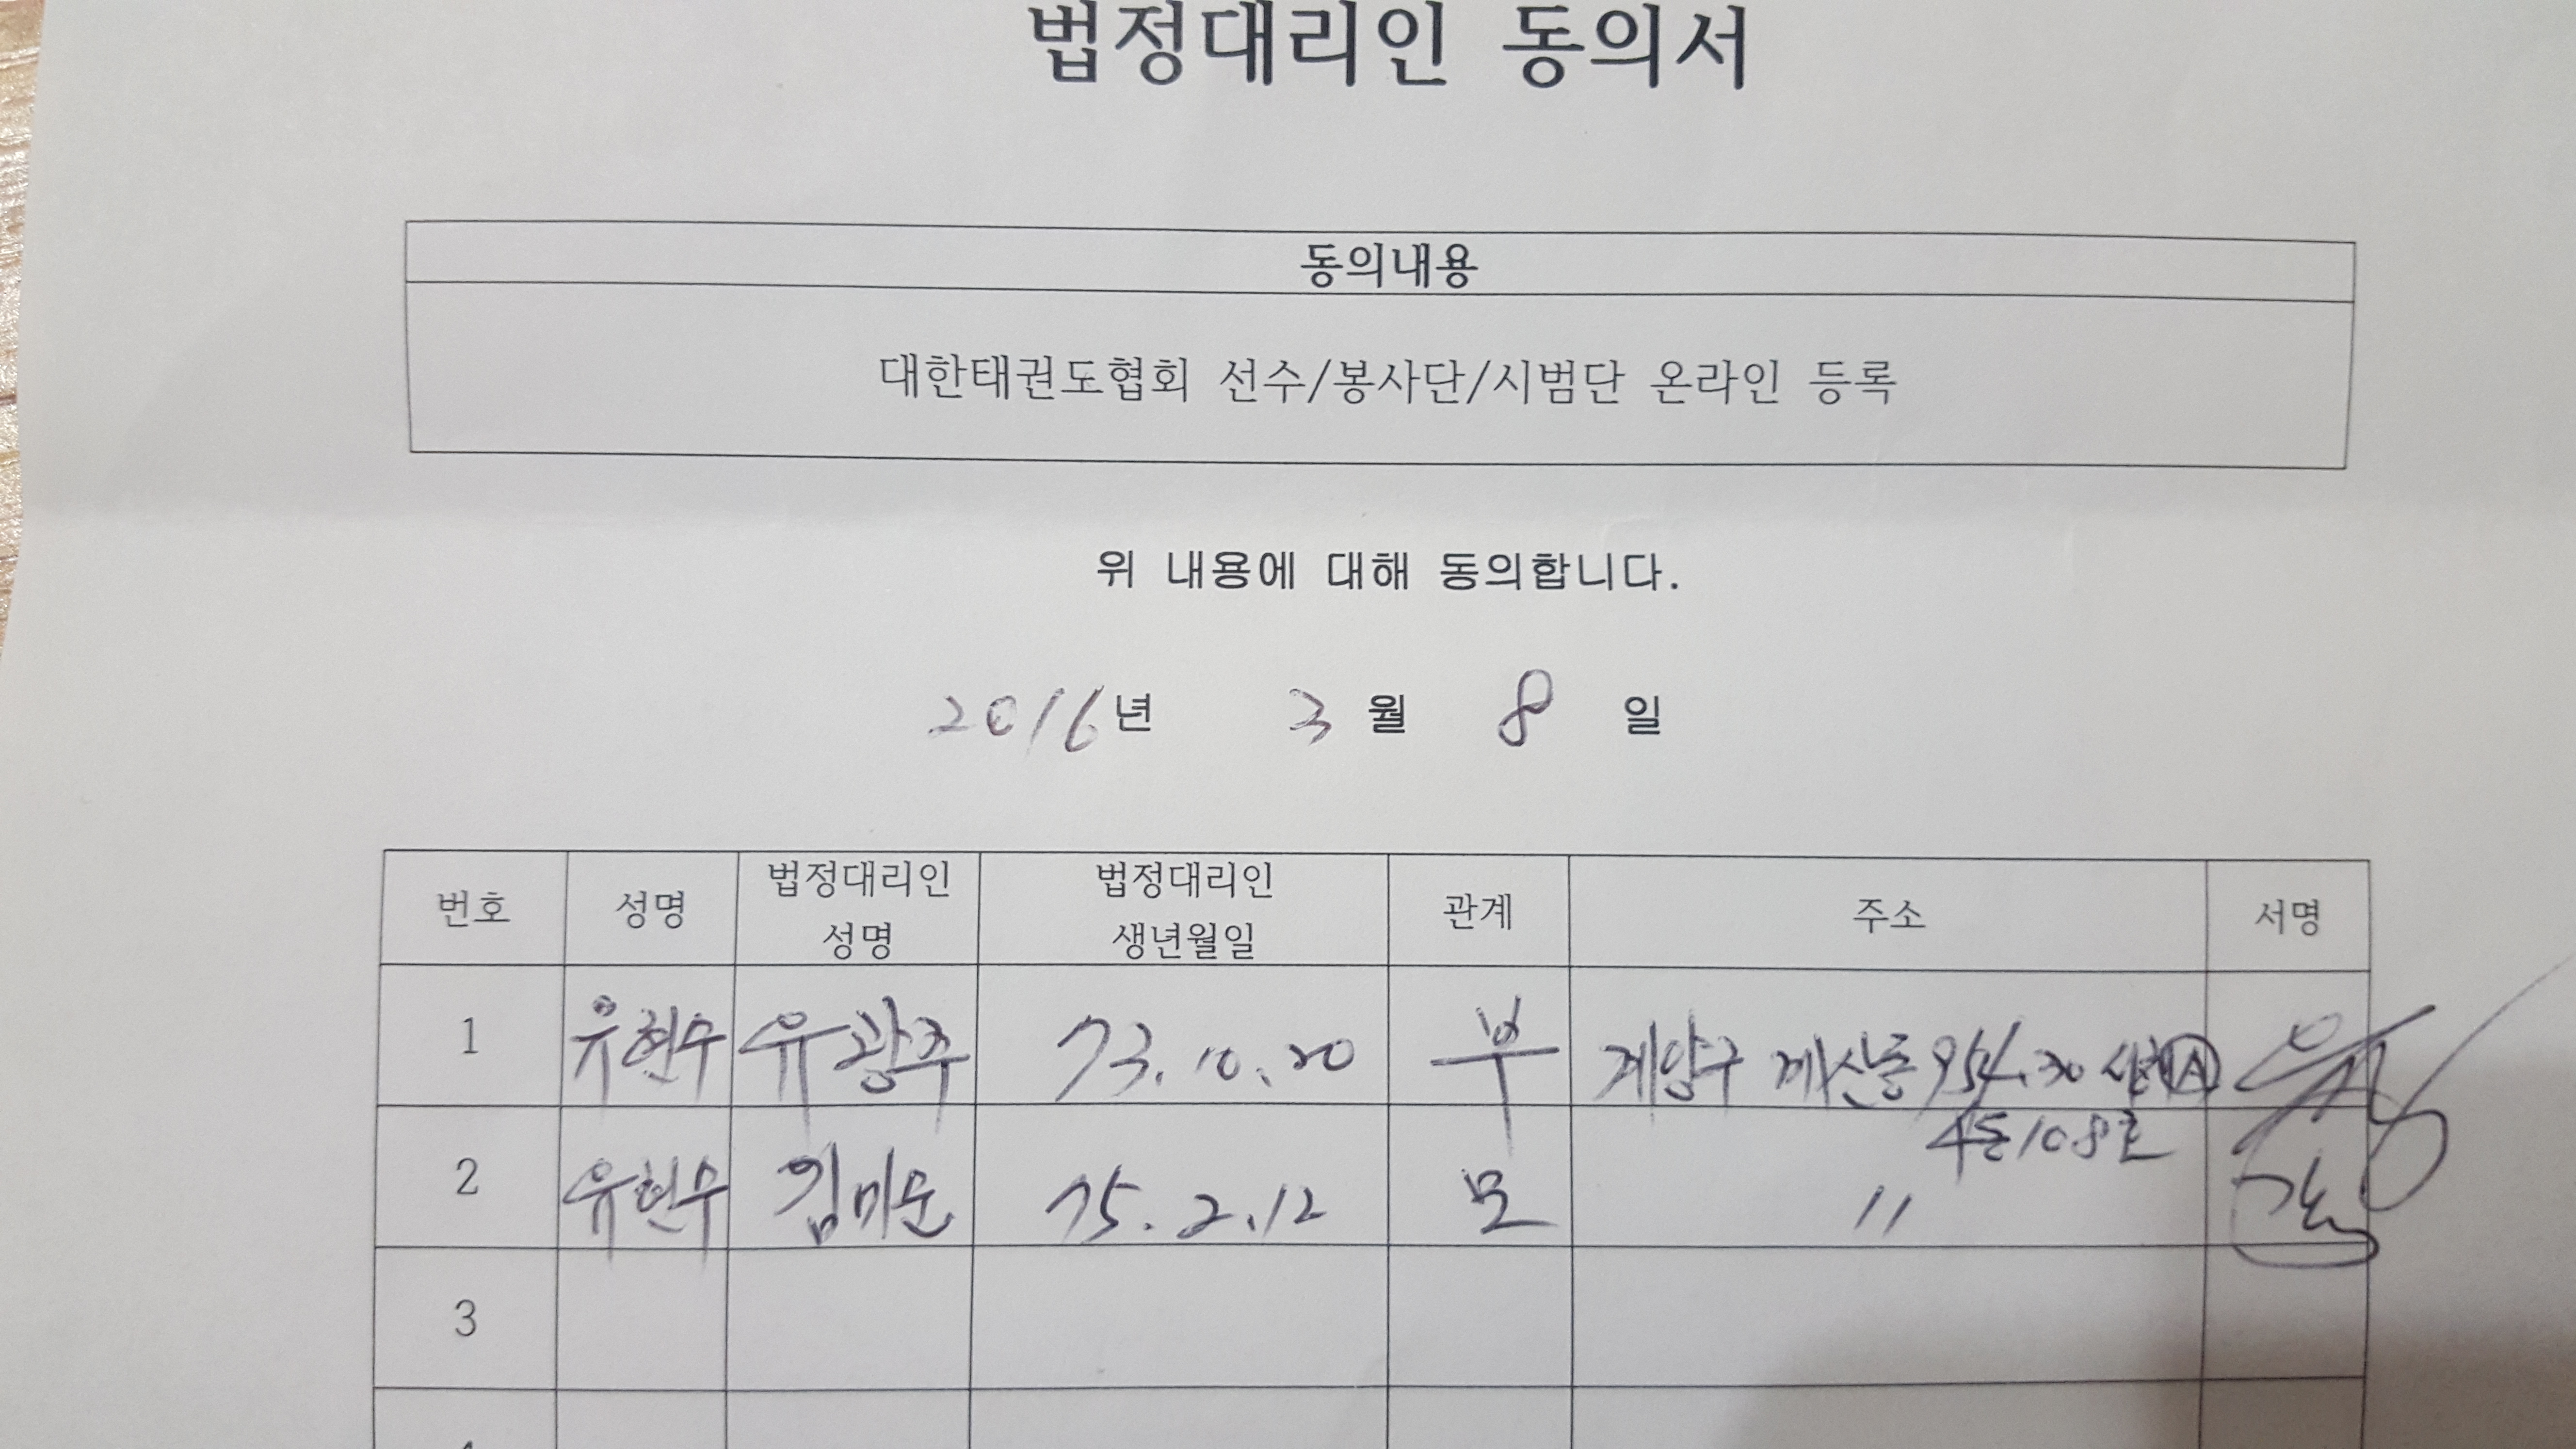 법정대리인 동의서
동의내용
대한태권도협회 선수/봉사단/시범단 온라인 등록
위 내용에 대해 동의합니다.
2016년 3월 8일
번호 성명 법정대리인 성명 법정대리인 생년월일 관계 주소 서명
1 유현수 유광주 73.10.20 부 계양구 계산동 954.30
4동 108호
2 유현수 김미순 75.2.12 모 〃
3